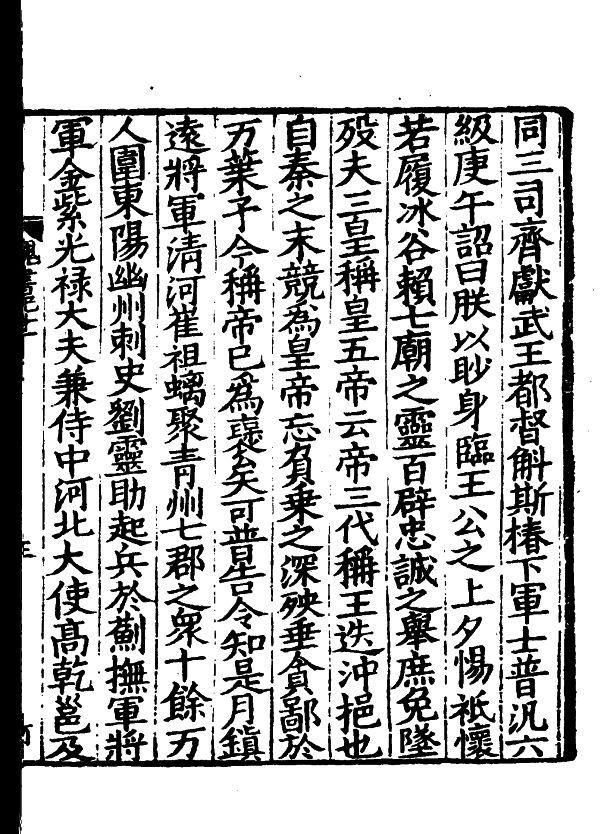 同三司齊獻武王都督斛斯椿下軍士普汎六
級庚午詔曰朕以眇身臨王公之上夕惕祗懷
若履冰谷賴七廟之靈百辟忠誠之舉庶免墜
歿夫三皇稱皇五帝云帝三代稱王迭沖挹也
自秦之末競為皇帝忘負乗之深殃垂貪鄙於
万葉予今稱帝已為襃矣可普告令知是月鎮
遠將軍清河崔祖螭聚青州七郡之眾十餘万
人圍東陽幽州刺史劉靈助起兵於薊撫軍將
軍金紫光禄大夫兼侍中河北大使髙乾邕及